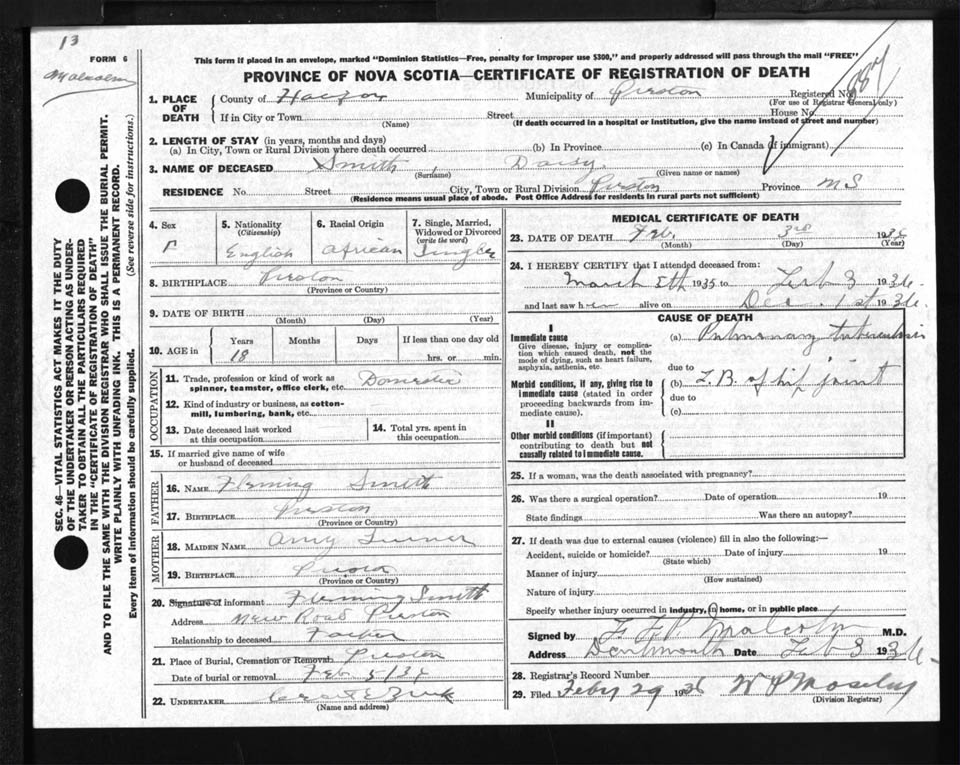 13
FORM 6
Malcolm
This form if placed in an envelope, marked "Dominion Statistics—Free, penalty for improper use $300," and properly addressed will pass through the mail "FREE"
PROVINCE OF NOVA SCOTIA—CERTIFICATE OF REGISTRATION OF DEATH
887
1. PLACE OF DEATH
County of Halifax Municipality of Preston Registered No.
(For use of Registrar General only)
If in City or Town Street House No.
(Name) (If death occurred in a hospital or institution, give the name instead of street and number)
2. LENGTH OF STAY (in years, months and days)
(a) In City, Town or Rural Division where death occurred (b) In Province (c) In Canada (if immigrant)
3. NAME OF DECEASED Smith, Daisy
(Surname) (Given name or names)
RESIDENCE No. Street City, Town or Rural Division Preston Province NS
(Residence means usual place of abode. Post Office Address for residents in rural parts not sufficient)
4. Sex F
5. Nationality (Citizenship) English
6. Racial Origin African
7. Single, Married, Widowed or Divorced (write the word) Single
8. BIRTHPLACE Preston
(Province or Country)
9. DATE OF BIRTH
(Month) (Day) (Year)
10. AGE in Years 18 Months Days If less than one day old
hrs. or min.
OCCUPATION
11. Trade, profession or kind of work as spinner, teamster, office clerk, etc. Domestic
12. Kind of industry or business, as cotton-mill, lumbering, bank, etc.
13. Date deceased last worked at this occupation
14. Total yrs. spent in this occupation
15. If married give name of wife or husband of deceased
FATHER
16. NAME Fleming Smith
17. BIRTHPLACE Preston
(Province or Country)
MOTHER
18. MAIDEN NAME Amy Turner
19. BIRTHPLACE
(Province or Country)
20. Signature of informant Fleming Smith
Address New Road Preston
Relationship to deceased Father
21. Place of Burial, Cremation or Removal Preston
Date of burial or removal Feb. 5/36
22. UNDERTAKER
(Name and address)
MEDICAL CERTIFICATE OF DEATH
23. DATE OF DEATH Feb. 3rd 1936
(Month) (Day) (Year)
24. I HEREBY CERTIFY that I attended deceased from:
March 5th 1935 to Feb 3 1936
and last saw her alive on Dec. 1st 1936
CAUSE OF DEATH
I
Immediate cause (a) Pulmonary tuberculosis
Give disease, injury or complication which caused death, not the mode of dying, such as heart failure, asphyxia, asthenia, etc.
due to
Morbid conditions, if any, giving rise to immediate cause (stated in order proceeding backwards from immediate cause).
(b) T.B. of hip joint
due to
(c)
II
Other morbid conditions (if important) contributing to death but not causally related to immediate cause.
25. If a woman, was the death associated with pregnancy?
26. Was there a surgical operation? Date of operation 19
State findings Was there an autopsy?
27. If death was due to external causes (violence) fill in also the following:—
Accident, suicide or homicide? Date of injury 19
(State which)
Manner of injury
(How sustained)
Nature of injury
Specify whether injury occurred in industry, in home, or in public place
Signed by Malcolm M.D.
Address Dartmouth Date Feb 3 1936
28. Registrar's Record Number
29. Filed Feby 29 1936 W P Moseley
(Division Registrar)
SEC. 46—VITAL STATISTICS ACT MAKES IT THE DUTY
OF THE UNDERTAKER OR PERSON ACTING AS UNDER-
TAKER TO OBTAIN ALL THE PARTICULARS REQUIRED
IN THE "CERTIFICATE OF REGISTRATION OF DEATH"
AND TO FILE THE SAME WITH THE DIVISION REGISTRAR WHO SHALL ISSUE THE BURIAL PERMIT.
WRITE PLAINLY WITH UNFADING INK. THIS IS A PERMANENT RECORD.
Every item of information should be carefully supplied. (See reverse side for instructions.)